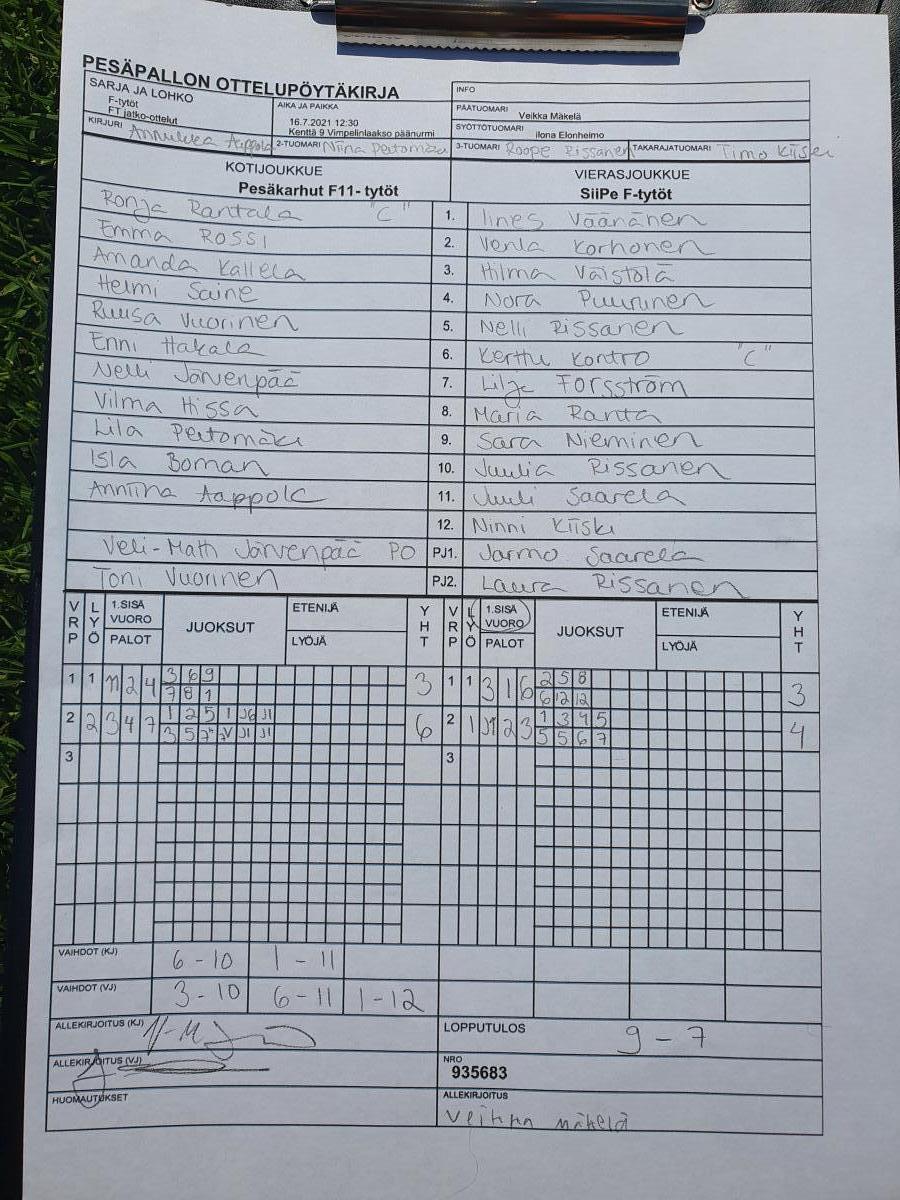 PESÄPALLON OTTELUPÖYTÄKIRJA
SARJA JA LOHKO
F-tytöt
FT jatko-ottelut
AIKA JA PAIKKA
16.7.2021 12:30
Kenttä 9 Vimpelinlaakso päänurmi
INFO
PÄÄTUOMARI Veikka Mäkelä
SYÖTTÖTUOMARI ilona Elonheimo
KIRJURI Annukka Aappola 2-TUOMARI Niina Peltomaa 3-TUOMARI Roope Rissanen TAKARAJATUOMARI Timo Kiiski
KOTIJOUKKUE VIERASJOUKKUE
Pesäkarhut F11- tytöt SiiPe F-tytöt
Ronja Rantala "C" 1. Iines Väänänen
Emma ROSSI 2. Venla Korhonen
Amanda Kallela 3. Hilma Väistölä
Helmi Saine 4. Nora Puurunen
Ruusa Vuorinen 5. Nelli Rissanen
Enni Hakala 6. Kerttu Kontro "C"
Nelli Järvenpää 7. Lilja Forsström
Vilma Hissa 8. Maria Ranta
Lila Peltomäki 9. Sara Nieminen
Isla Boman 10. Juulia Rissanen
Anniina Aappola 11. Juuli Saarela
12. Ninni Kiiski
Veli-Matti Järvenpää PO PJ1. Jarmo Saarela
Toni Vuorinen PJ2. Laura Rissanen
VRP LYÖ 1.SISÄ VUORO PALOT JUOKSUT ETENIJÄ LYÖJÄ YHT VRP LYÖ 1.SISÄ VUORO PALOT JUOKSUT ETENIJÄ LYÖJÄ YHT
1 1 2 4 3 6 9 3 1 1 3 1 6 2 5 8 3
7 8 1 6 12 12
2 2 3 4 7 1 2 5 1 J6 J1 6 2 1 2 3 1 3 4 5 4
3 5 J1 J1 5 5 6 7
3 3
VAIHDOT (KJ) 6-10 1-11
VAIHDOT (VJ) 3-10 6-11 1-12
ALLEKIRJOITUS (KJ) LOPPUTULOS 9-7
ALLEKIRJOITUS (VJ) NRO
935683
HUOMAUTUKSET ALLEKIRJOITUS
Veikka Mäkelä